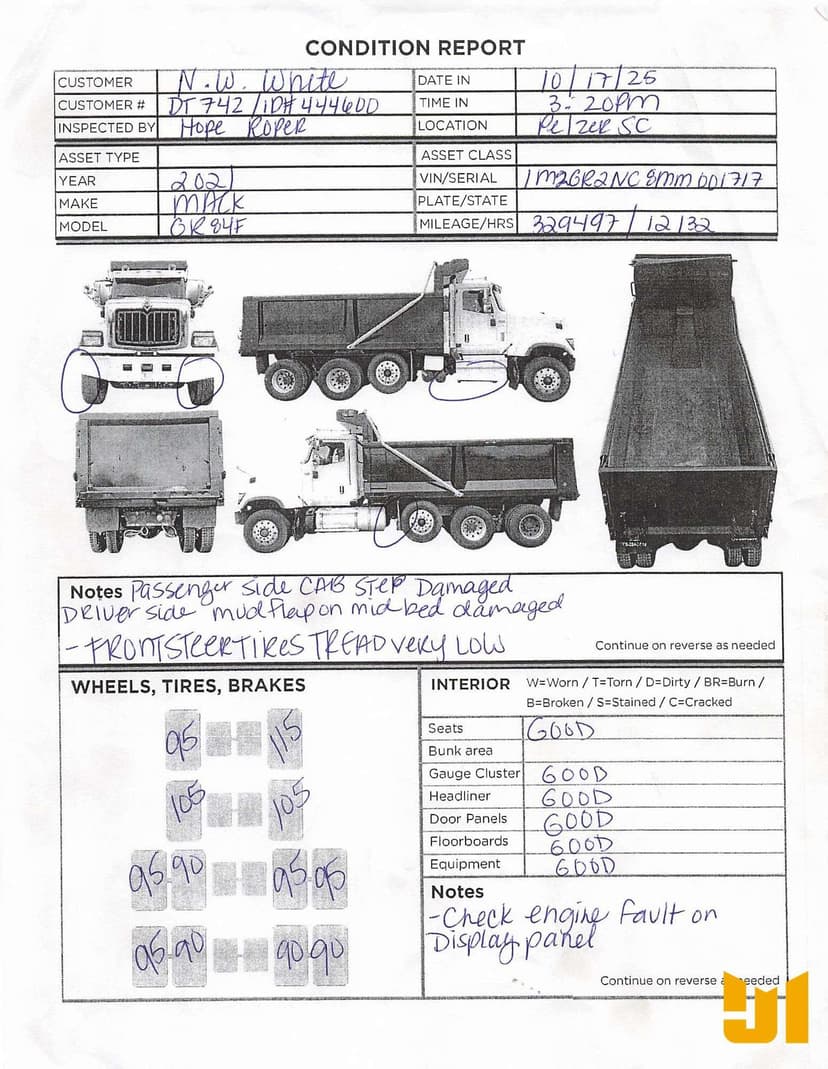 CONDITION REPORT
CUSTOMER N.W. White DATE IN 10/17/25
CUSTOMER # DT 742 / ID# 444600 TIME IN 3:20PM
INSPECTED BY Hope Roper LOCATION Pelzer SC
ASSET TYPE ASSET CLASS
YEAR 2021 VIN/SERIAL 1M2GR2NC8MM001717
MAKE MACK PLATE/STATE
MODEL GR84F MILEAGE/HRS 329497 / 12132
Notes Passenger side CAB STEP Damaged
DRIVER side mudflap on mid bed damaged
- FRONT STEER TIRES TREAD VERY LOW
Continue on reverse as needed
WHEELS, TIRES, BRAKES
95 115
105 105
95 90 95 95
95 90 90 90
INTERIOR W=Worn / T=Torn / D=Dirty / BR=Burn /
B=Broken / S=Stained / C=Cracked
Seats GOOD
Bunk area
Gauge Cluster GOOD
Headliner GOOD
Door Panels GOOD
Floorboards GOOD
Equipment GOOD
Notes
- Check engine fault on
Display panel
Continue on reverse as needed